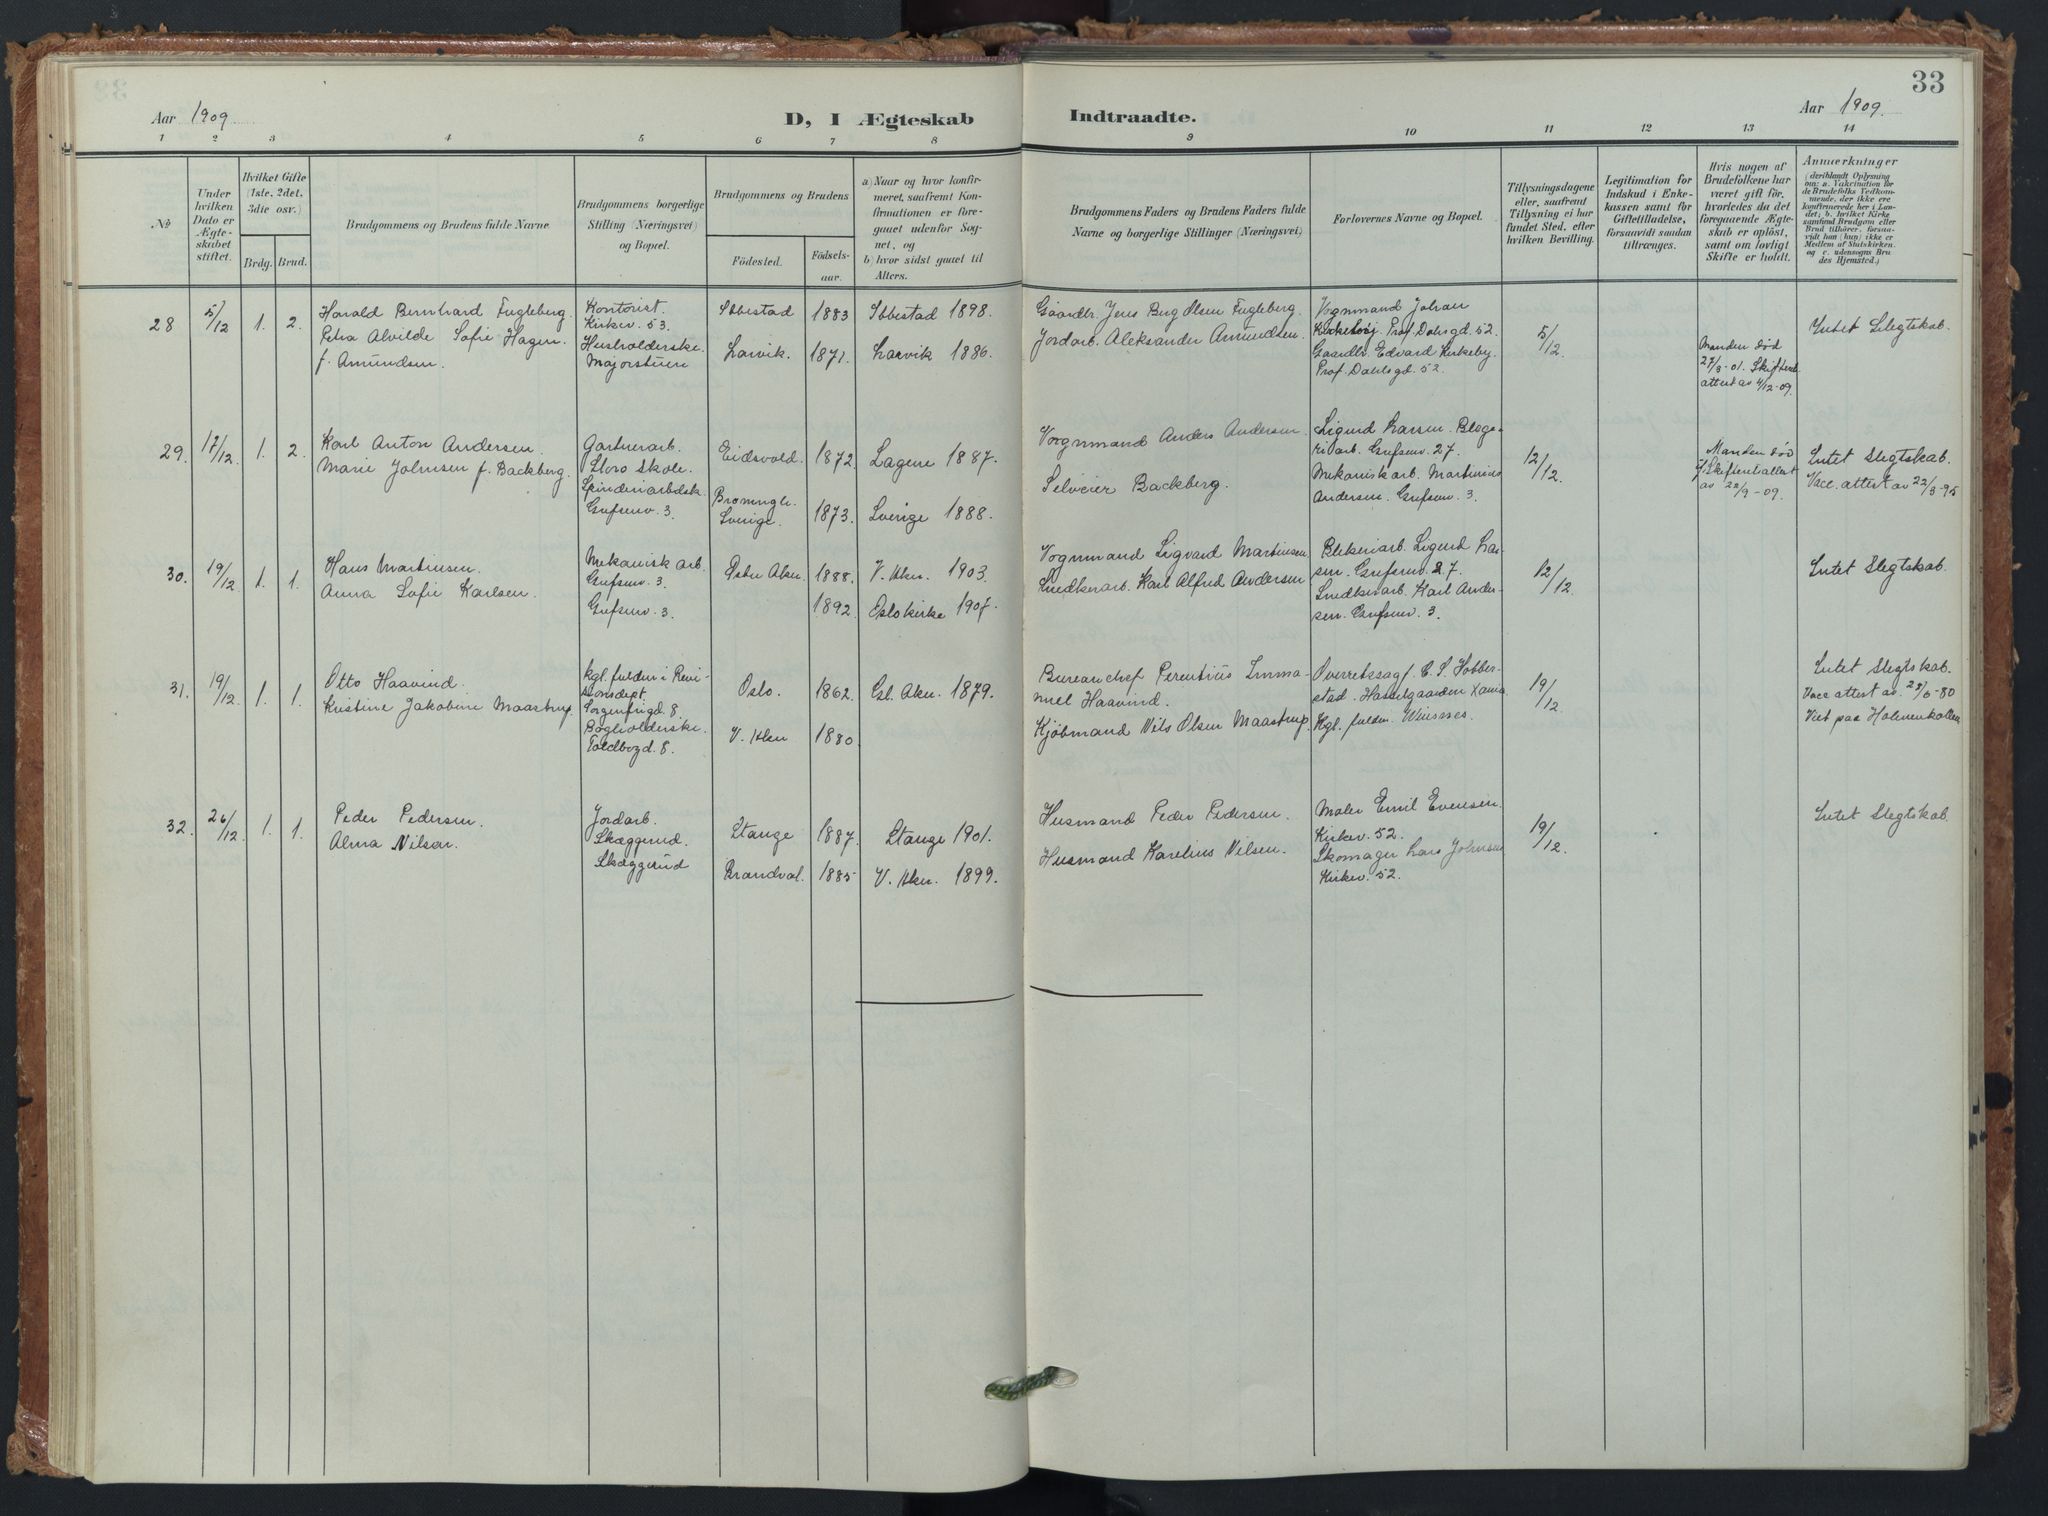 33
Aar 1909
D, I Ægteskab Indtraadte.
Aar 1909.
1 2 3 4 5 6 7 8 9 10 11 12 13 14
No
Under hvilken Dato er Ægteskabet stiftet.
Hvilket Gifte (1ste, 2det, 3die osv.)
Brdg. Brud.
Brudgommens og Brudens fulde Navne
Brudgommens borgerlige Stilling (Næringsvei) og Bopæl.
Brudgommens og Brudens
Födested. Födselsaar.
a) Naar og hvor konfirmeret, saafremt Konfirmationen er foregaaet udenfor Sognet, og
b) hvor sidst gaaet til Alters.
Brudgommens Faders og Brudens Faders fulde Navne og borgerlige Stillinger (Næringsvei)
Forlovernes Navne og Bopæl.
Tillysningsdagene eller, saafremt Tillysning ei har fundet Sted, efter hvilken Bevilling.
Legitimation for Indskud i Enkekassen samt for Giftetilladelse, forsaavidt saadan tiltrænges.
Hvis nogen af Brudefolkene har været gift för, hvorledes da det foregaaende Ægteskab er oplöst, samt om lovligt Skifte er holdt.
Anmærkninger (deriblandt Oplysning om: a. Vakcination for de Brudefolks Vedkommende, der ikke ere konfirmerede her i Landet; b. hvilket Kirkesamfund Brudgom eller Brud tilhörer, forsaavidt han (hun) ikke er Medlem af Statskirken. og c. udensogns Brudes Hjemsted.)
28 5/12 1. 2. Harald Bernhard Fugleberg.
Petra Alvilde Sofie Hagen
f. Amundsen.
Kontorist.
Kirkev. 53.
Husholderske.
Majorstuen
Ibbestad 1883 Ibbestad 1898.
Larvik. 1871. Larvik 1886.
Gaardbr. Jens Olsen Fugleberg.
Jordarb. Aleksander Amundsen.
Vognmand Johan
Prof. Dahlsgd. 52.
Gaardbr. Edvard Kirkeby
Prof. Dahlsgd. 52.
5/12
Manden död
27/3-01. Skifteret
attest av 4/12-09.
Intet Slegtskab.
29. 17/12 1. 2 Karl Anton Andersen
Marie Johnsen f. Backberg.
Gartnerarb.
Storo Skole.
Spinderiarbdsk.
Grefsenv. 3.
Eidsvold. 1872. 1887.
Sverige. 1873. Sverige 1888.
Vognmand Anders Andersen.
Backberg.
Sigurd Larsen
Grefsenv. 27.
Mekanisk arb. Martinius
Andersen. Grefsenv. 3.
12/12
Manden död
Skifteret attest
av 22/9-09.
Intet Slegtskab.
Vacc. attest av 22/3-95
30. 19/12 1. 1. Hans Martinsen.
Anna Sofie Karlsen.
Mekanisk arb.
Grefsenv. 3.
Grefsenv. 3.
Østre Aker. 1888. V. Aker. 1903.
1892 Oslo kirke 1907.
Vognmand Sigvard Martinsen
Snedkerarb. Karl Alfred Andersen
Blekeriarb. Sigurd Lar-
sen. Grefsenv. 27.
Snedkerarb. Karl Ander-
sen. Grefsenv. 3.
12/12.
Intet Slegtskab.
31. 19/12 1. 1. Otto Haavind.
Kristine Jakobine Maastrup.
kgl. fuldm i Revi-
sionsdept.
Sorgenfrigd. 8
Bogholderske.
Toldbogd. 8.
Oslo. 1862. Gl. Aker. 1879.
V. Aker 1880.
Bureauchef Imma-
nuel Haavind.
Kjöbmand Nils Olsen Maastrup.
Overretssagf. C. S. Hobber-
stad. Hasselgaarden X.ania
Kgl. fuldm.
19/12
Intet Slegtskab.
Vacc attest av. 80
Viet paa Holmenkollen
32. 26/12 1. 1. Peder Pedersen.
Alma Nilsen.
Jordarb.
Skæggerud.
Skæggerud
Stange 1887. Stange 1901.
Brandval. 1885 V. Aker. 1899.
Husmand Peder Pedersen.
Husmand Karelius Nilsen.
Maler Emil Evensen.
Kirkev. 52.
Skomager Lars Johnsen
Kirkev. 52.
19/12.
Intet Slegtskab.